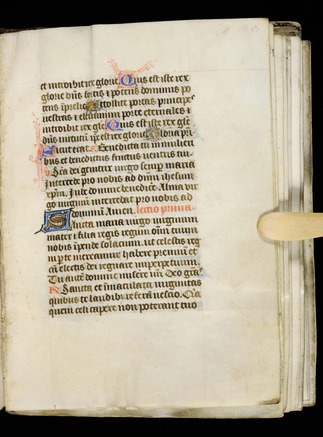 et introibit rex glorie. Quis est iste rex
glorie dns fortis et potens dominus po
tens in prelio. Attollite portas principes
vestras et elevamini porte eternales et
introibit rex glie. Quis est iste rex glie
dns virtutum ipse est rex glorie. Gloria pri
Sicut erat. Benedicta tu in mulieri
bus et benedictus fructus ventris tui.
Sca dei genitrix virgo semp maria
Intercede pro nobis ad dnm ihesum
xpm. Iube domne benedice. Alma vir
go virginum intercedat pro nobis ad
dominum. Amen. lectio prima
Sancta maria virgo virginum
mater et filia regis regum omnium
nobis impende solacium. ut celestis reg
ni p te mereamur habere premium et
cum electis dei regnare in perpetuum.
Tu autem domine miserere nri. Deo gras
Sancta et immaculata virginitas
quibus te laudibus referam nescio. Quia
quem celi capere non poterant tuo